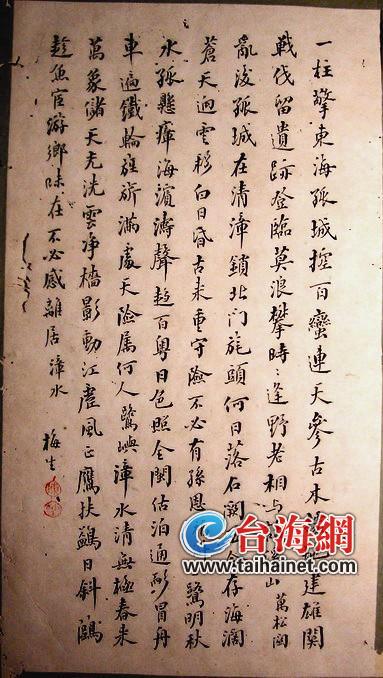 一柱擎東海孤城控百蠻連天參古木建雄關
戰伐留遺跡登臨莫浪攀時々逢野老相与山萬松関
亂後孤城在清漳鎖北门旄頭何日落石闕存海濶
蒼天迥雲移白日昏古来重守險不必有孫恩鷺明秋
水孤懸瘴海濵濤聲趋百粤日色照全閩估泊通舟
車遍鐵輪旌旂滿處天險属何人鷺嶼漳水清無極春来
萬象儲天光洗雲净檣影動江虚風正鷹扶鷁日斜鷗
趁魚宦游鄉味在不必感離居漳水
梅生
台海網
www.taihainet.com